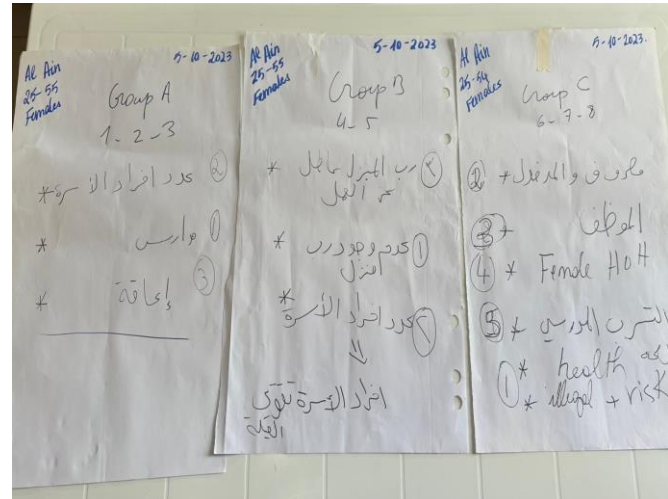 Al Ain
25-55
Females
5-10-2023
Group A
1-2-3
② عدد افراد الأسرة *
① مدارس *
③ إعاقة *
Al Ain
25-55
Females
5-10-2023
Group B
4-5
③ رب المنزل عاطل *
عن العمل
① عدم وجود رب *
المنزل
② عدد افراد الأسرة *
افراد الأسرة
Al Ain
25-54
Females
5-10-2023.
Group C
6-7-8
② * مصروف والمدخول
③ *
④ * Female HoH
⑤ * التسرب المدرسي
① * health
* illegal + risk